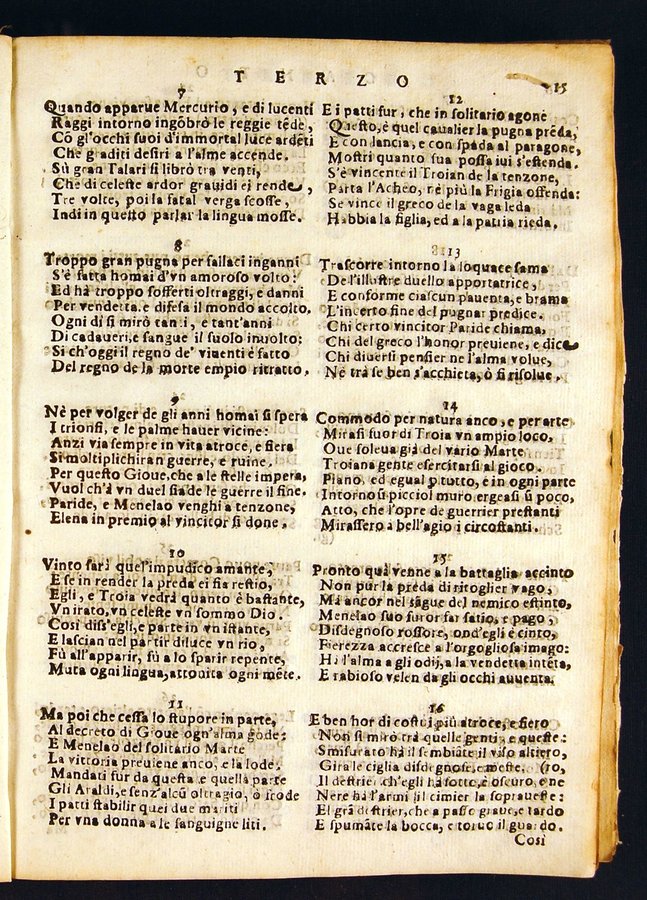 TERZO
15
7
Quando apparue Mercurio, e di lucenti
Raggi intorno ingõbrò le reggie tẽde,
Cõ gl'occhi suoi d'immortal luce ardẽti
Che graditi desiri a l'alme accende.
Sù gran Talari si librò tra venti,
Che di celeste ardor grauidi ei rende,
Tre volte, poi la fatal verga scosse,
Indi in questo parlar la lingua mosse.
8
Troppo gran pugna per fallaci inganni
S'è fatta homai d'vn amoroso volto:
Ed hà troppo sofferti oltraggi, e danni
Per vendetta, e difesa il mondo accolto.
Ogni dì si mirò tanti, e tant'anni
Di cadaueri, e sangue il suolo inuolto:
Sì ch'oggi il regno de' viuenti è fatto
Del regno de la morte empio ritratto.
9
Nè per volger de gli anni homai si spera
I trionfi, e le palme hauer vicine:
Anzi via sempre in vita atroce, e fiera
Si moltiplichiran guerre, e ruine.
Per questo Gioue, che a le stelle impera,
Vuol ch'a vn duel sia de le guerre il fine.
Paride, e Menelao venghi a tenzone,
Elena in premio al vincitor si done.
10
Vinto sarà quel'impudico amante,
E se in render la preda ei fia restio,
Egli, e Troia vedrà quanto è bastante,
Vn irato, vn celeste vn sommo Dio.
Così diss'egli, e parte in vn istante,
E lascian nel partir di luce vn rio,
Fù all'apparir, fù a lo sparir repente,
Muta ogni lingua, attonita ogni mẽte.
11
Ma poi che cessa lo stupore in parte,
Al decreto di Gioue ogn'alma gode:
E Menelao del solitario Marte
La vittoria preuiene anco, e la lode.
Mandati fur da questa e quella parte
Gli Araldi, e senz'alcũ oltragio, ò frode
I patti stabilir quei due mariti
Per vna donna a le sanguigne liti.
12
E i patti fur, che in solitario agone
Questo, e quel caualier la pugna prẽda,
E con lancia, e con spada al paragone,
Mostri quanto sua possa iui s'estenda.
S'è vincente il Troian de la tenzone,
Parta l'Acheo, nè più la Frigia offenda:
Se vince il greco de la vaga leda
Habbia la figlia, ed a la patria rieda.
13
Trascorre intorno la loquace fama
De l'illustre duello apportatrice,
E conforme ciascun pauenta, e brama
L'incerto fine del pugnar predice.
Chi certo vincitor Paride chiama,
Chi del greco l'honor preuiene, e dice
Chi diuersi pensier ne l'alma volue,
Nè trà se ben s'acchieta, ò si risolue.
14
Commodo per natura anco, e per arte
Mirasi fuor di Troia vn ampio loco,
Oue soleua già del vario Marte
Troiana gente esercitarsi al gioco.
Piano, ed egual p tutto, e in ogni parte
Intorno si picciol muro ergeasi ũ poco,
Atto, che l'opre de guerrier prestanti
Mirassero a bell'agio i circostanti.
15
Pronto quà venne a la battaglia accinto
Non pur la preda di ritoglier vago,
Ma ancor nel sãgue del nemico estinto,
Menelao suo furor far satio, e pago,
Disdegnoso rossore, ond'egli è cinto,
Fierezza accresce a l'orgogliosa imago:
Hà l'alma a gli odij, a la vendetta intẽta,
E rabioso velen da gli occhi auuenta.
16
E ben hor di costui più atroce, e fiero
Non si mirò tra quelle genti, e queste:
Smisurato hà il sembiãte il viso altiero,
Gira le ciglia disdegnose, e meste. (ro,
Il destrier ch'egli hà sotto, è oscuro, e ne
Nere hà l'armi il cimier la sopraueste:
El grã destrier, che a passo graue, e tardo
E spumãte la bocca, e toruo il guardo.
Così